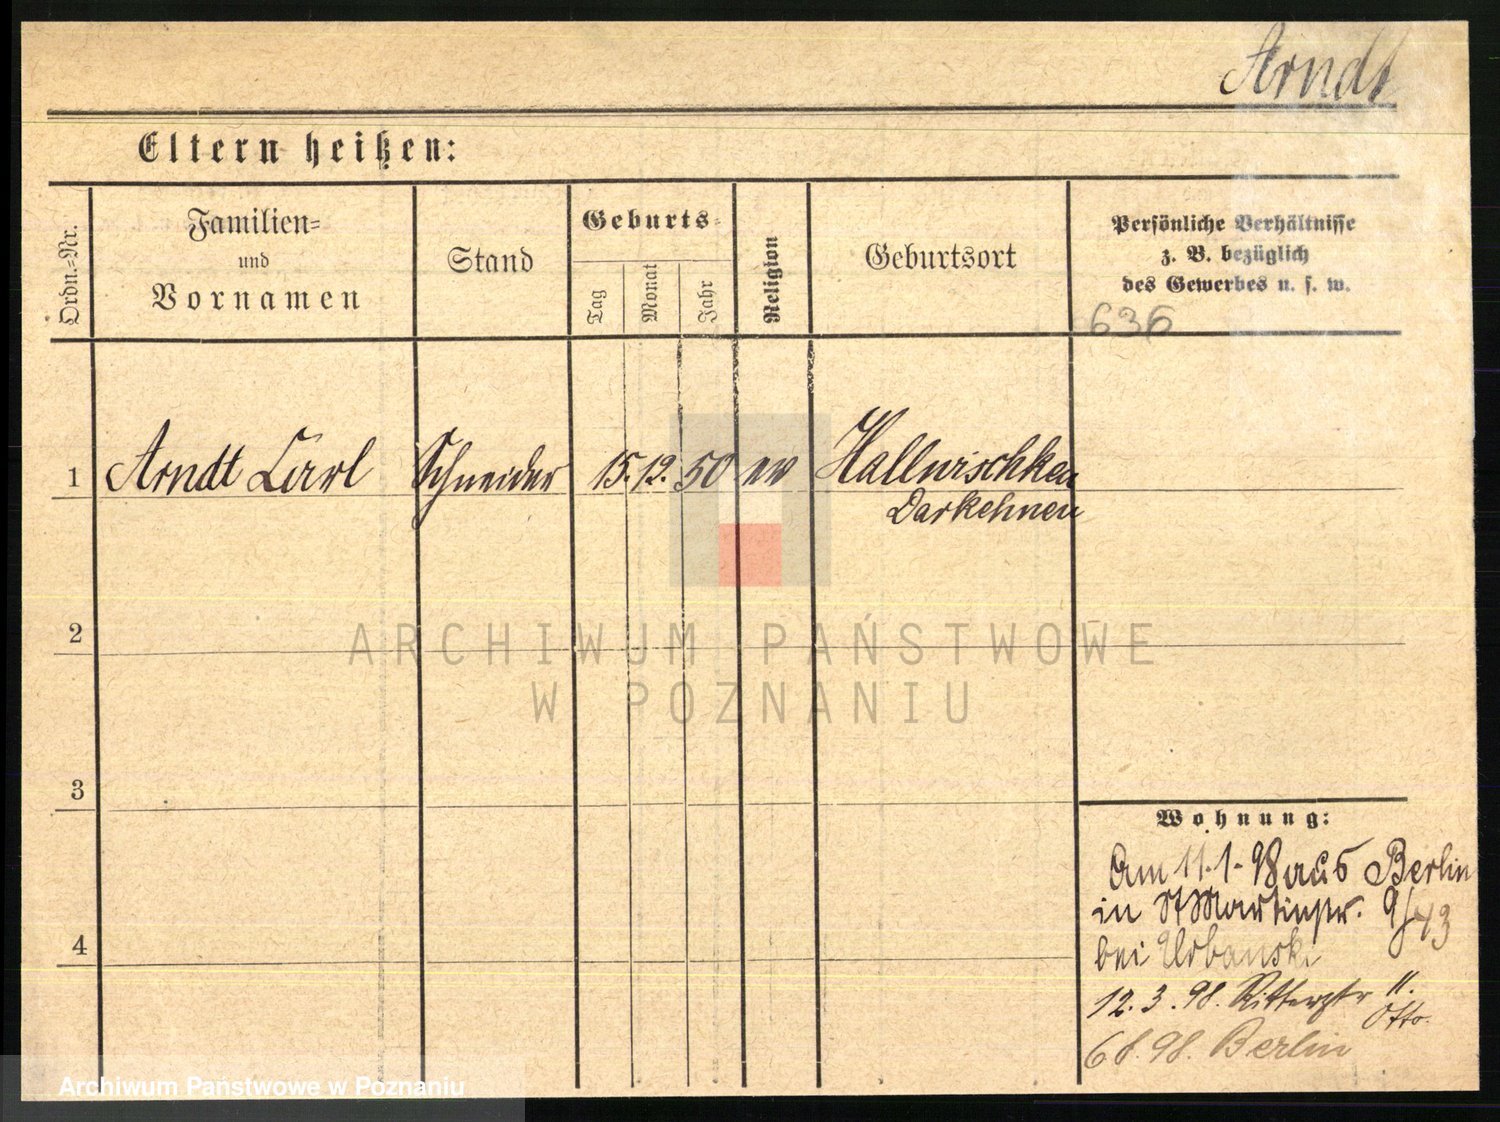 Arndt
Eltern heißen:
Ordn.-Nr.
Familien-
und
Vornamen
Stand
Geburts-
Tag
Monat
Jahr
Religion
Geburtsort
Persönliche Verhältnisse
z. B. bezüglich
des Gewerbes u. s. w.
636
1 Arndt Carl Schneider 15. 12. 50 ev Hallwischken
Darkehnen
2
3
4
Wohnung:
Am 11.1.98 aus Berlin
in St Martinstr. 9/43
bei Urbanski
12.3.98. Ritterstr 11.
Otto.
6 8.98. Berlin
ARCHIWUM PAŃSTWOWE
W POZNANIU
Archiwum Państwowe w Poznaniu